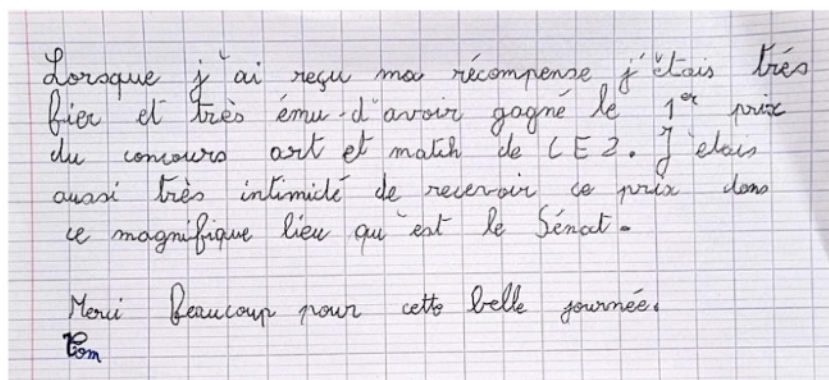 Lorsque j'ai reçu ma récompense j'étais trés
fier et très ému d'avoir gagné le 1er prix
du concours art et match de CE2. J'etais
aussi très intimidé de recevoir ce prix dans
ce magnifique lieu qu'est le Sénat.
Merci Beaucoup pour cette belle journée.
Tom